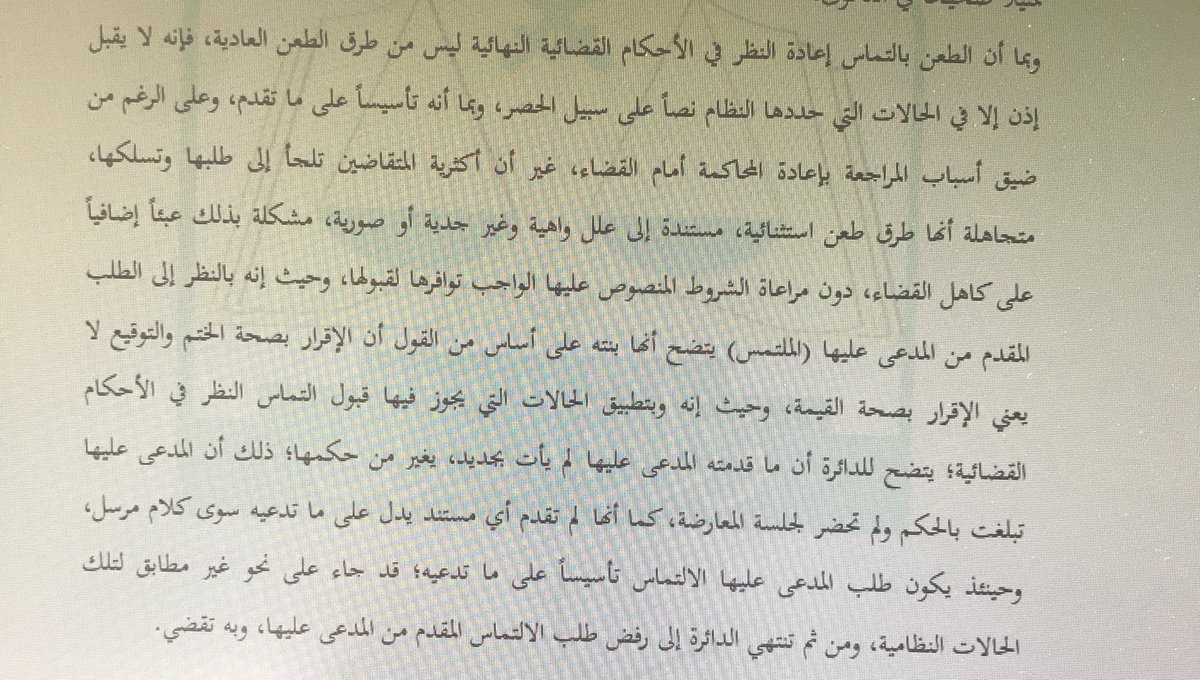 وبما أن الطعن بالتماس إعادة النظر في الأحكام القضائية النهائية ليس من طرق الطعن العادية، فإنه لا يقبل
إذن إلا في الحالات التي حددها النظام نصاً على سبيل الحصر، وبما أنه تأسيساً على ما تقدم، وعلى الرغم من
ضيق أسباب المراجعة بإعادة المحاكمة أمام القضاء، غير أن أكثرية المتقاضين تلجأ إلى طلبها وتسلكها،
متجاهلة أنها طرق طعن استثنائية، مستندة إلى علل واهية وغير جدية أو صورية، مشكلة بذلك عبئاً إضافياً
على كاهل القضاء، دون مراعاة الشروط المنصوص عليها الواجب توافرها لقبولها، وحيث إنه بالنظر إلى الطلب
المقدم من المدعى عليها (الملتمس) يتضح أنها بنته على أساس من القول أن الإقرار بصحة الختم والتوقيع لا
يعني الإقرار بصحة القيمة، وحيث إنه وبتطبيق الحالات التي يجوز فيها قبول التماس النظر في الأحكام
القضائية؛ يتضح للدائرة أن ما قدمته المدعى عليها لم يأت بجديد، يغير من حكمها؛ ذلك أن المدعى عليها
تبلغت بالحكم ولم تحضر لجلسة المعارضة، كما أنها لم تقدم أي مستند يدل على ما تدعيه سوى كلام مرسل،
وحينئذ يكون طلب المدعى عليها الالتماس تأسيساً على ما تدعيه؛ قد جاء على نحو غير مطابق لتلك
الحالات النظامية، ومن ثم تنتهي الدائرة إلى رفض طلب الالتماس المقدم من المدعى عليها، وبه تقضي.